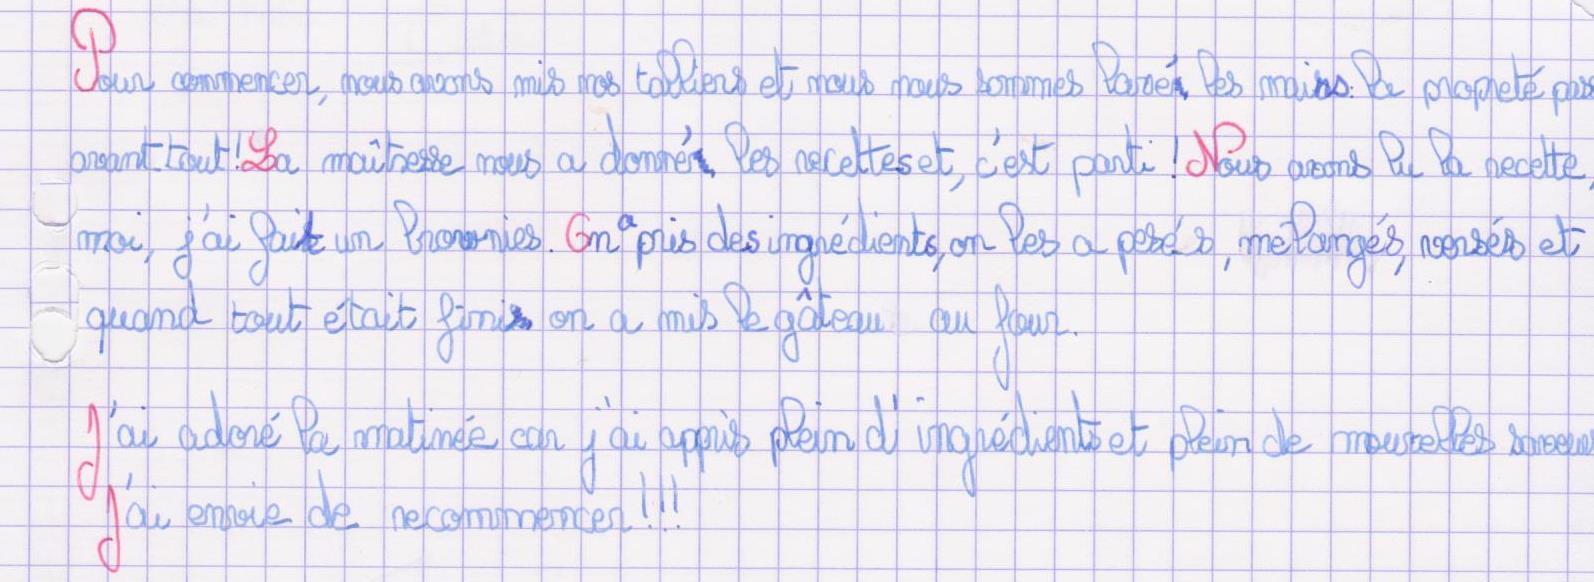 Pour commencer, nous avons mis nos tabliers et nous nous sommes lavé les mains. La propreté pas
avant tout! La maîtresse nous a donné les recettes et, c'est parti! Nous avons lu la recette,
moi, j'ai fait un brownies. On a pris des ingrédients, on les a pesés, mélangés, versés et
quand tout était fini on a mis le gâteau au four.
J'ai adoré la matinée car j'ai appris plein d'ingrédients et plein de nouvelles
J'ai envie de recommencer!!!